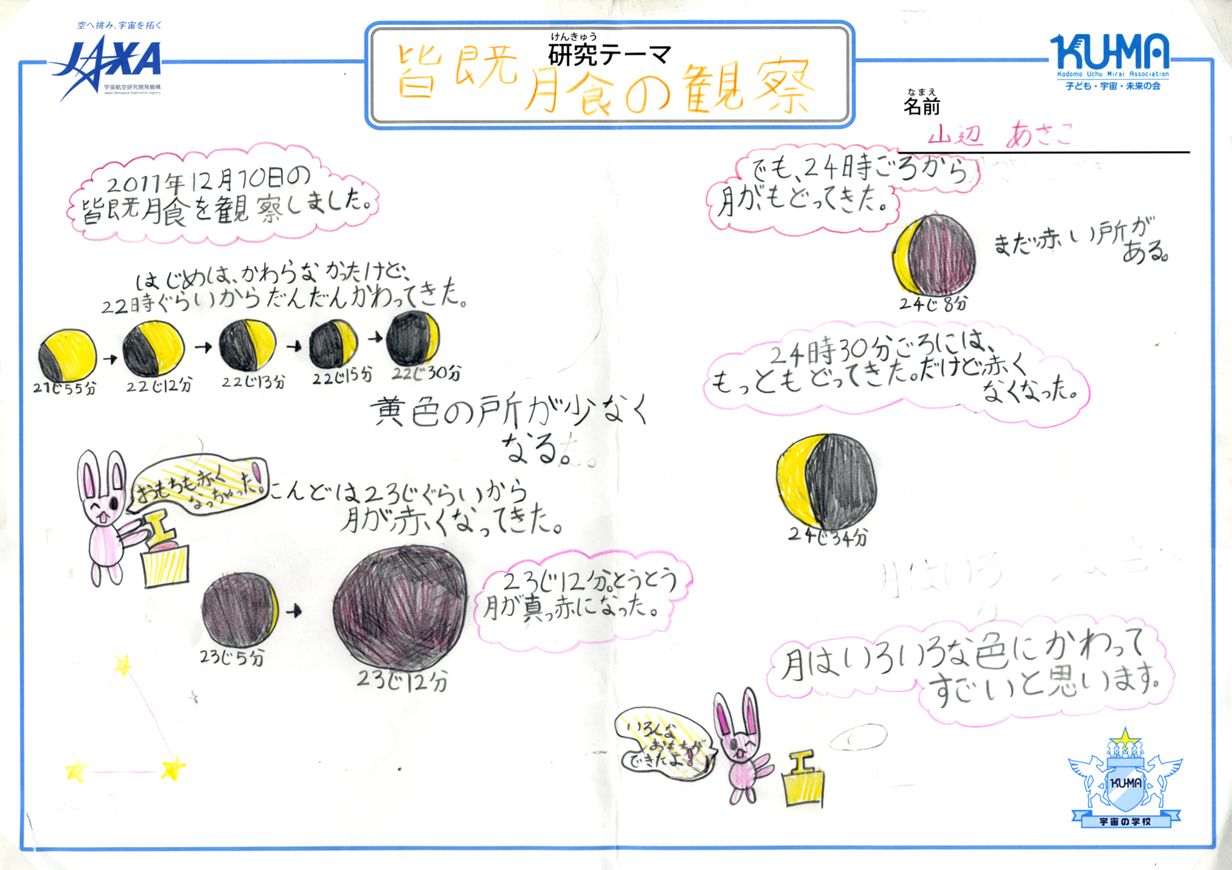 空へ挑み、宇宙を拓く
JAXA
宇宙航空研究開発機構
Japan Aerospace Exploration Agency
けんきゅう
研究テーマ
皆既月食の観察
KU-MA
Kodomo Uchu Mirai Association
子ども・宇宙・未来の会
なまえ
名前
山辺 あさこ
2011年12月10日の
皆既月食を観察しました。
はじめは、かわらなかったけど、
22時ぐらいからだんだんかわってきた。
21じ55分
22じ12分
22じ13分
22じ15分
22じ30分
黄色の所が少なく
なる。
おもちも赤く
なっちゃった。
こんどは23じぐらいから
月が赤くなってきた。
23じ5分
23じ12分
23じ12分。とうとう
月が真っ赤になった。
でも、24時ごろから
月がもどってきた。
まだ赤い所が
ある。
24じ8分
24時30分ごろには、
もっともどってきた。だけど赤く
なくなった。
24じ34分
月はいろ
月はいろいろな色にかわって
すごいと思います。
いろんな
おもちが
できたよ。
KU-MA
宇宙の学校